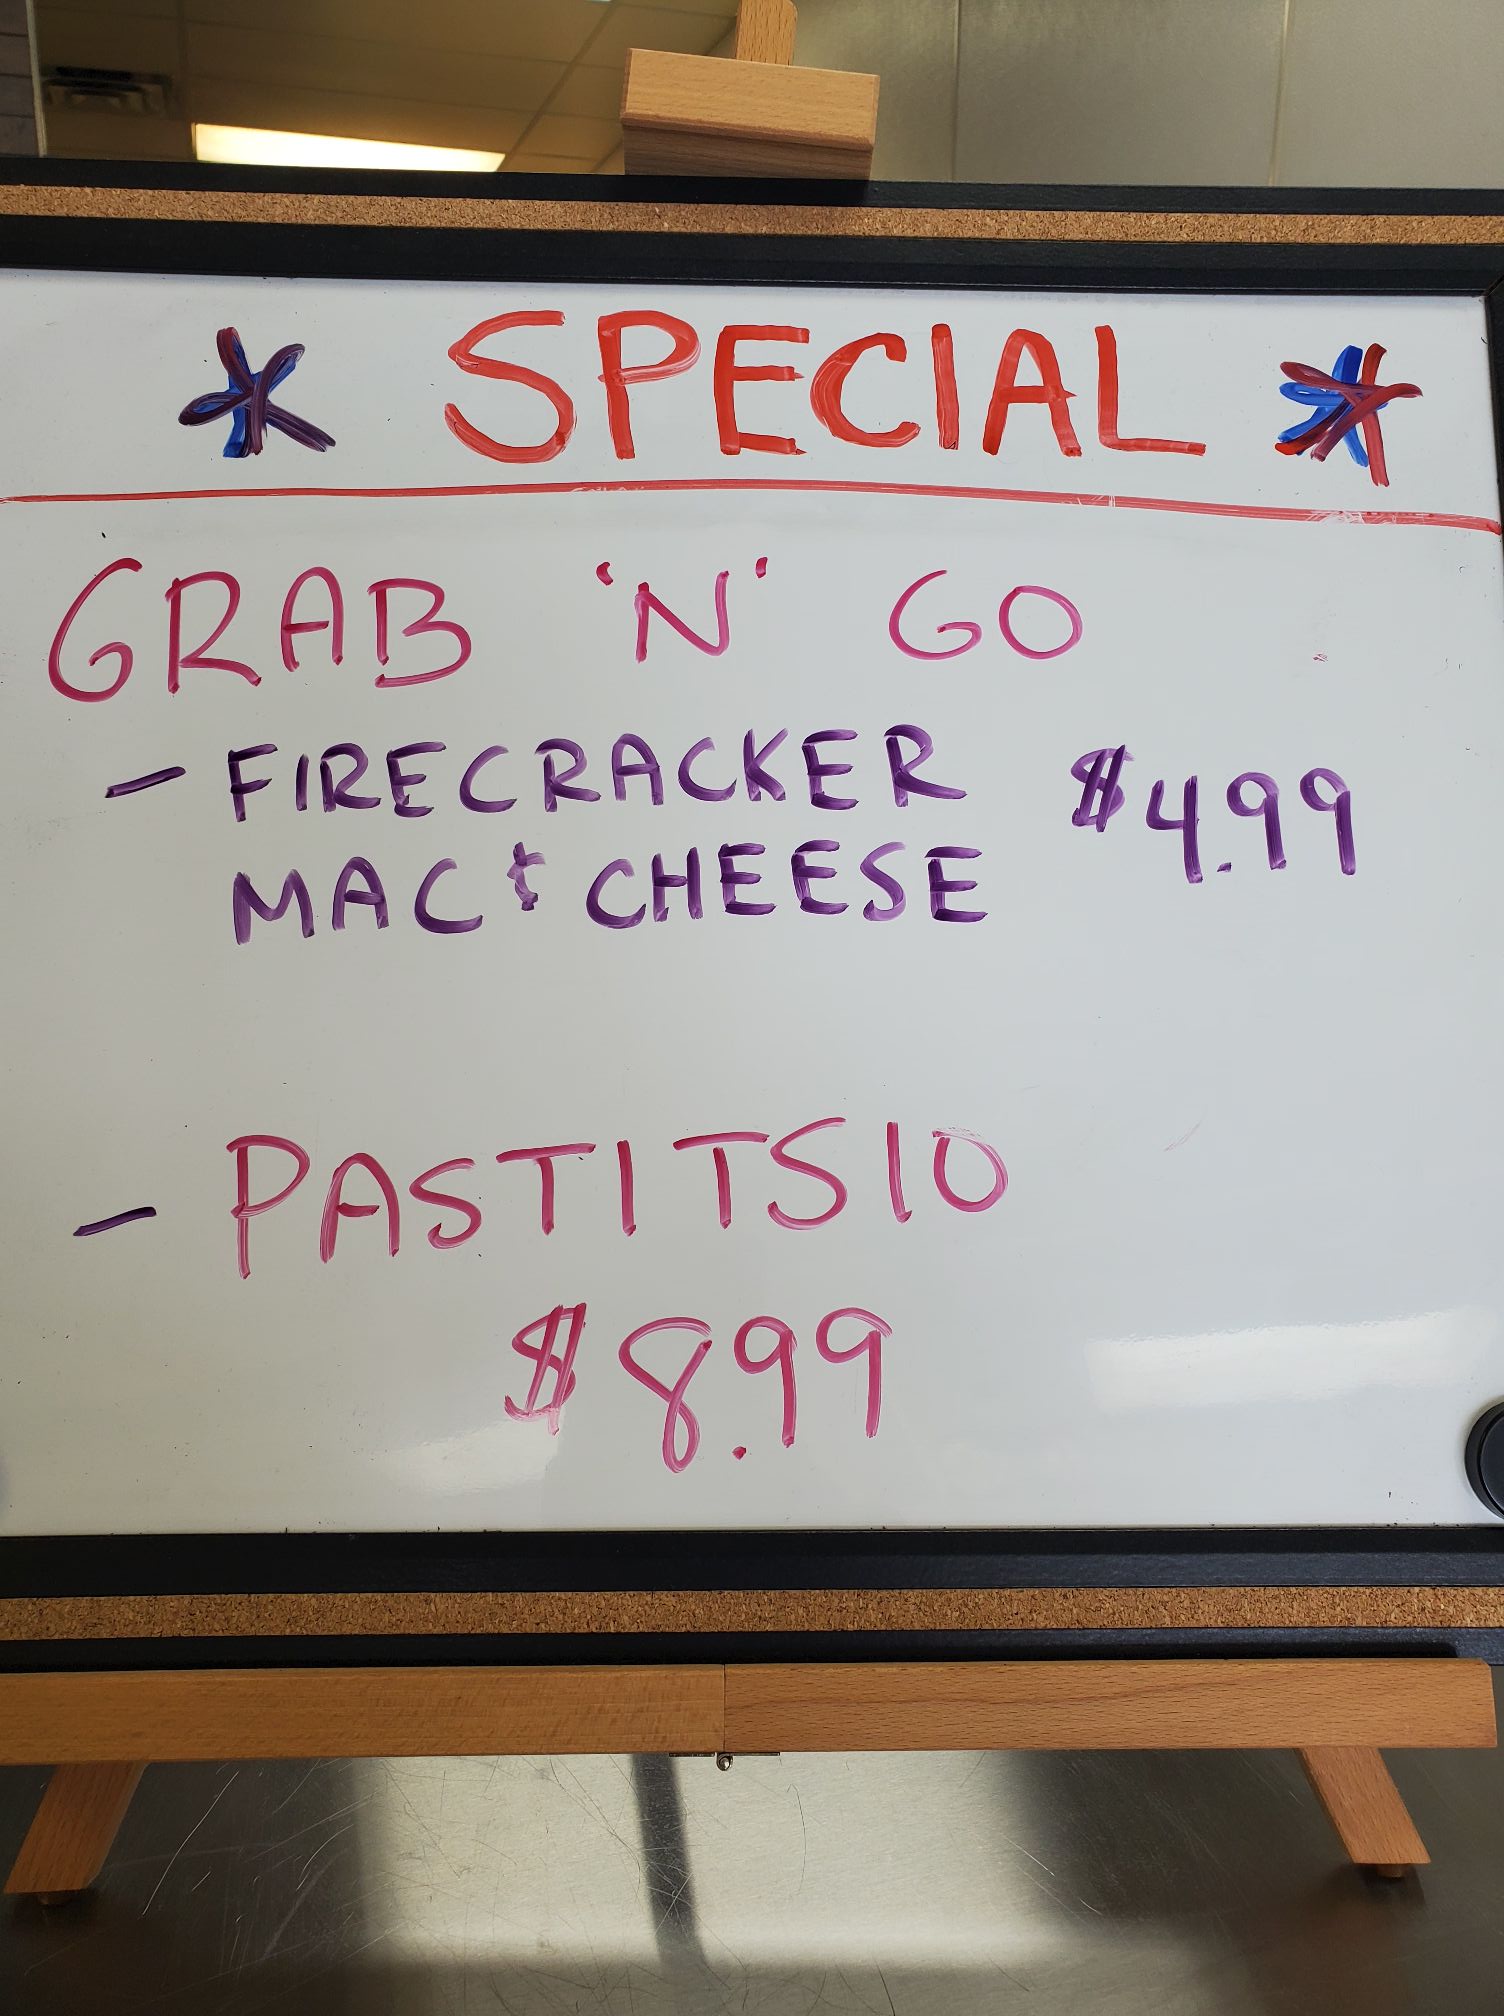 * SPECIAL *
GRAB 'N' GO
- FIRECRACKER $4.99
MAC & CHEESE
- PASTITSIO
$8.99